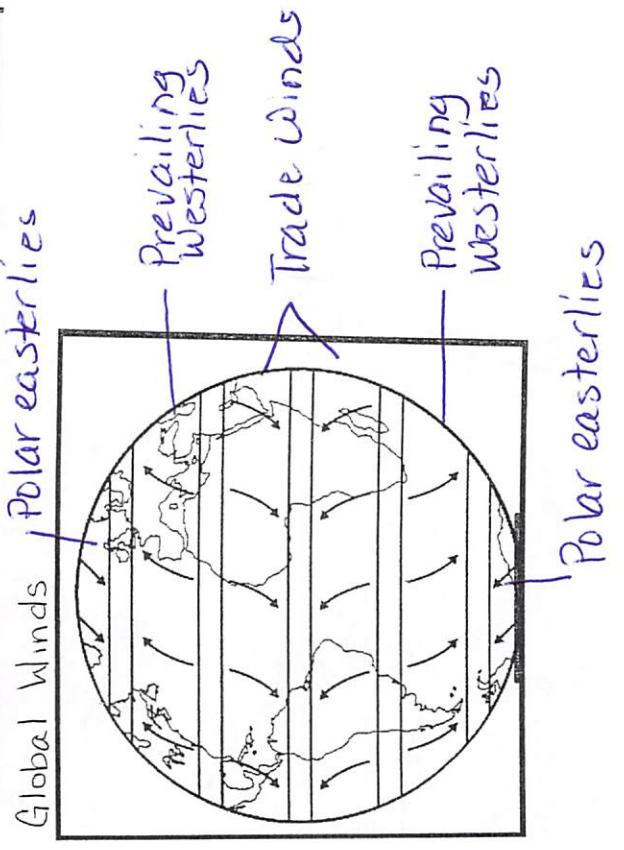 Global Winds
Polar easterlies
Prevailing
Westerlies
Trade Winds
Prevailing
Westerlies
Polar easterlies